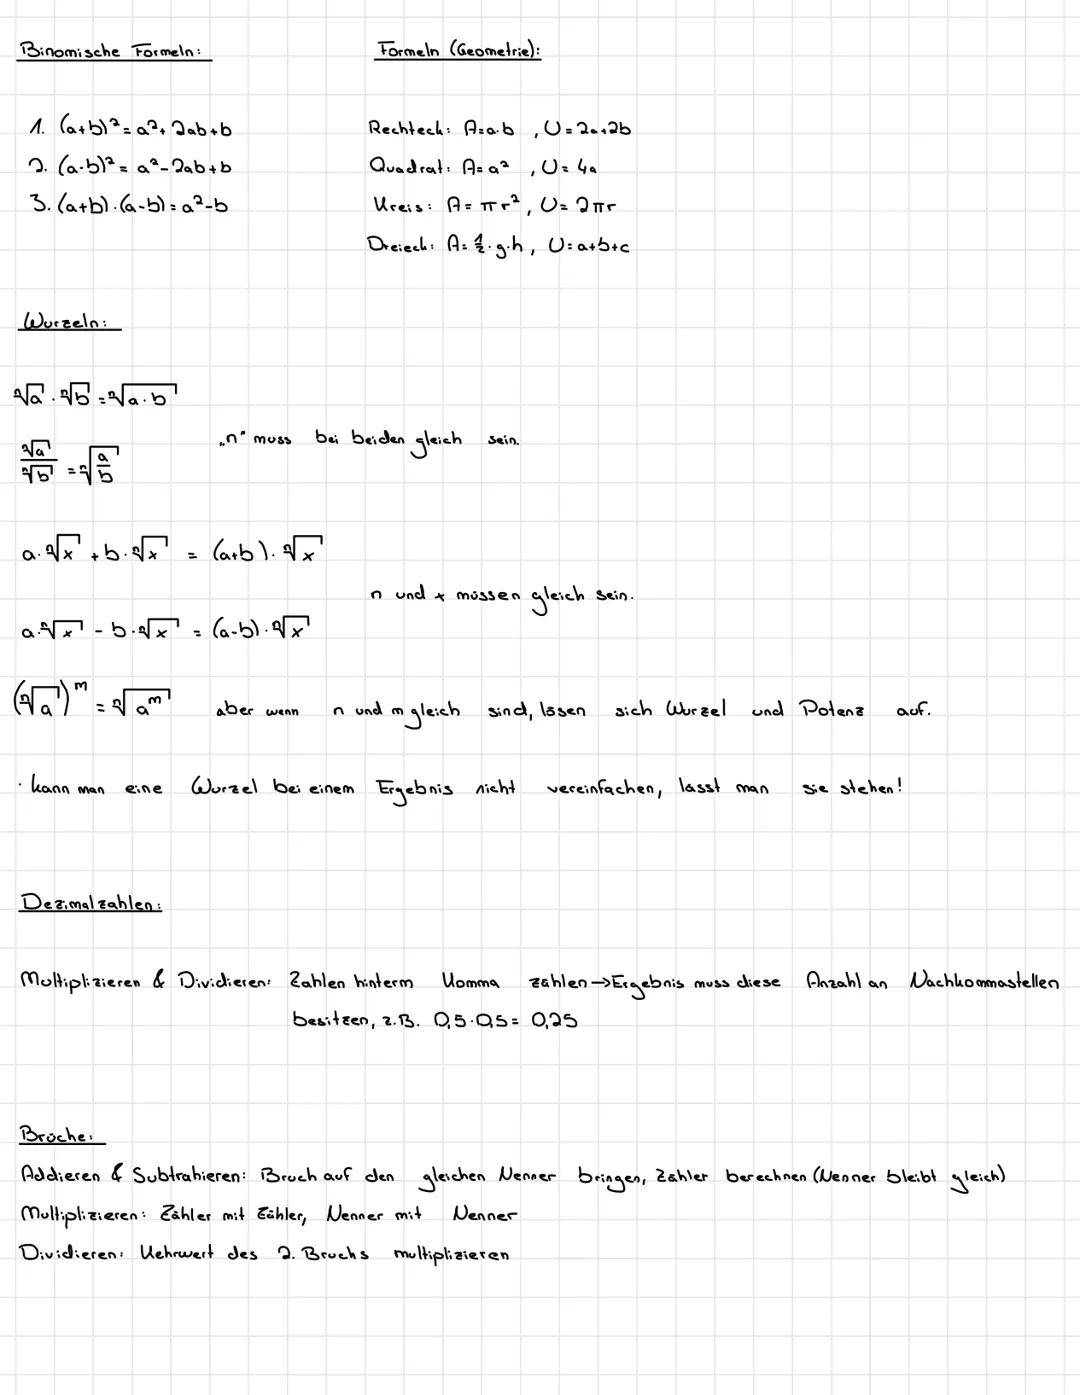 Binomische Formeln:
Formeln (Geometrie):
1. (a+b)² = a² + 2ab+b
2. (a-b)² = a² - 2ab+b
3. (a+b)·(a-b) = a²-b
Rechteck: A=a·b , U=2a+2b
Quadrat: A=a² , U=4a
Kreis: A=πr² , U=2πr
Dreieck: A=½·g·h, U=a+b+c
Wurzeln:
ⁿ√a · ⁿ√b = ⁿ√(a·b)
ⁿ√a / ⁿ√b = ⁿ√(a/b)
„n" muss bei beiden gleich sein.
a·ⁿ√x + b·ⁿ√x = (a+b)·ⁿ√x
n und x müssen gleich sein.
a·ⁿ√x - b·ⁿ√x = (a-b)·ⁿ√x
(ⁿ√a)ᵐ = ⁿ√aᵐ aber wenn n und m gleich sind, lösen sich Wurzel und Potenz auf.
· kann man eine Wurzel bei einem Ergebnis nicht vereinfachen, lässt man sie stehen!
Dezimalzahlen:
Multiplizieren & Dividieren: Zahlen hinterm Komma zählen → Ergebnis muss diese Anzahl an Nachkommastellen
besitzen, z.B. 0,5·0,5= 0,25
Brüche:
Addieren & Subtrahieren: Bruch auf den gleichen Nenner bringen, Zähler berechnen (Nenner bleibt gleich)
Multiplizieren: Zähler mit Zähler, Nenner mit Nenner
Dividieren: Kehrwert des 2. Bruchs multiplizieren